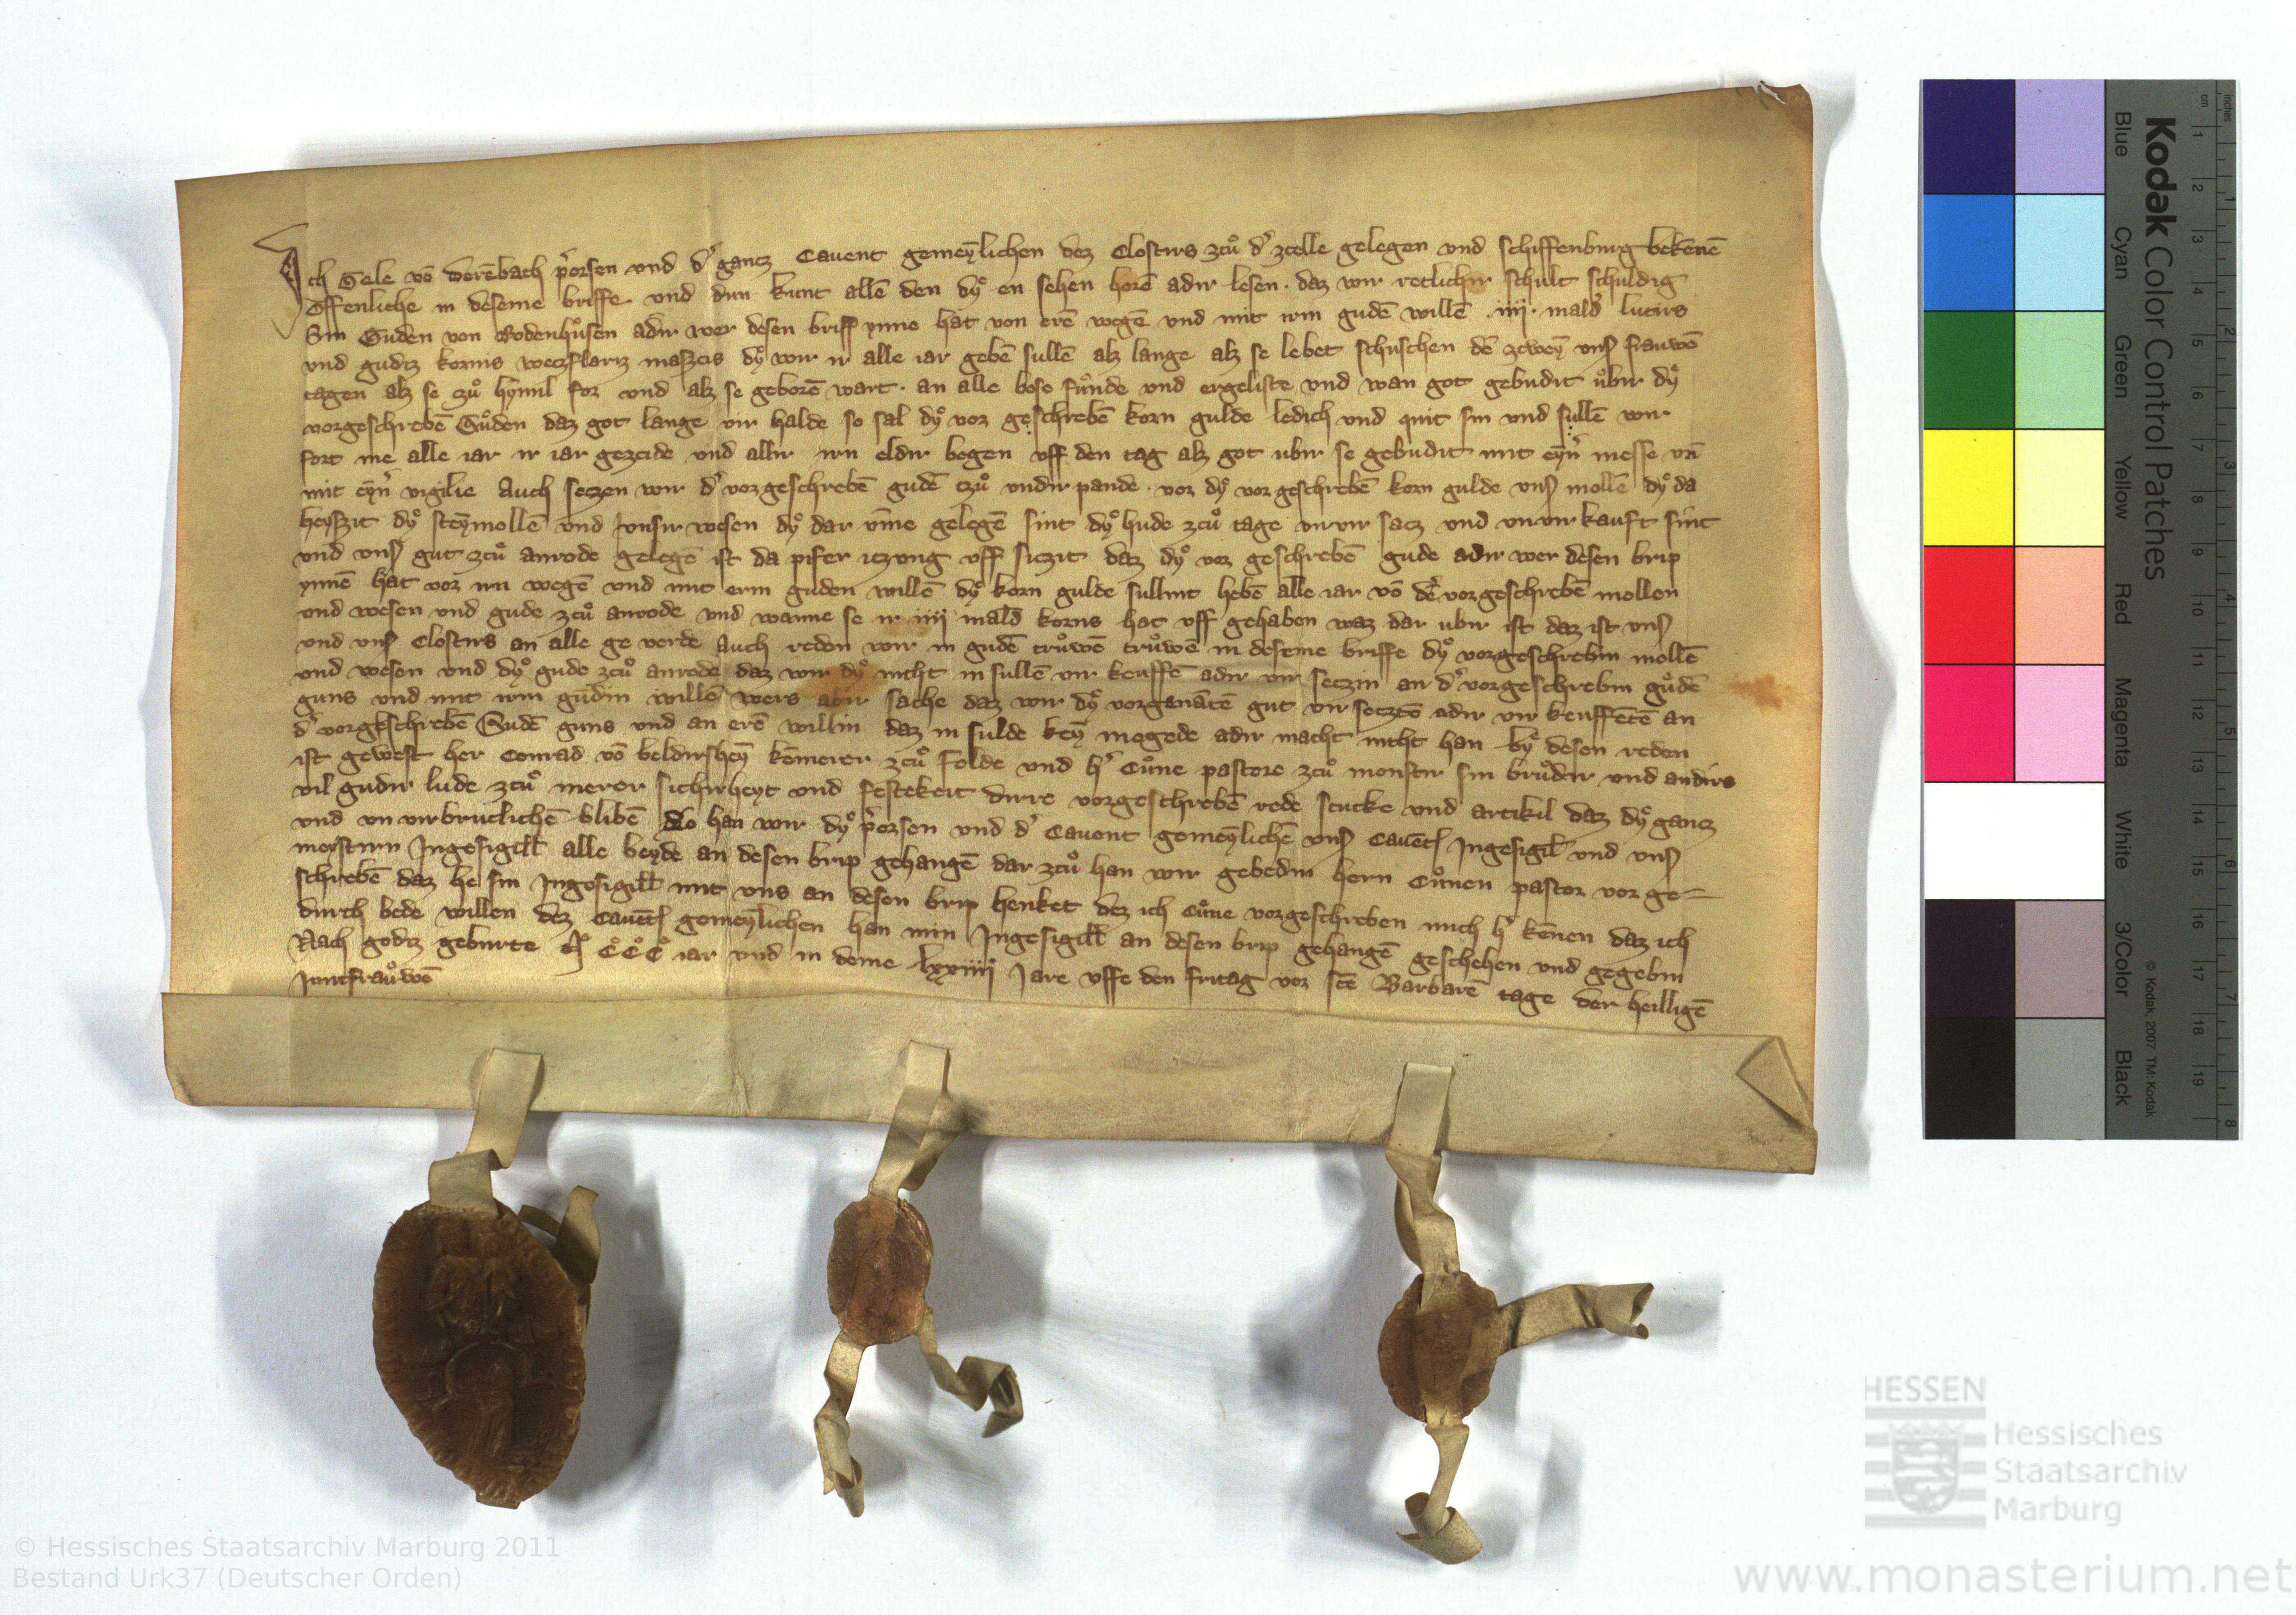 Ich Gele vō derēbach p̄orsen vnd dͬ gancz Cauent gemeȳlichen dez Closters zcuͦ dͬ zcelle gelegen vnd schiffenburg bekēnē
Offenliche in deseme briffe vnd dun kunt allē den dyͦ en sehen horē adir lesen · daz wir retlichir schult schuldig
Sin Guden von Rodenhuͦsen adir wer desen briff ynne hat von erē wegē vnd mit irm gudē willē · iiii · maldͬ luters
vnd gudiz korns weczflariz maszcis dyͦ wir ir alle iar gebē sullē alz lange alz se lebet schuschen dē zcweȳ vnsͬ frauwē
tagen alz se zuͦ hȳmil for vnd alz se geborē wart · an alle bose fuͦnde vnd ergeliste vnd wan got gebudit uͦbir dyͦ
vorgeschrebē Guͦden daz got lange vir halde so sal dyͦ vor geschrebē korn gulde ledich vnd quit sin vnd sullē wir
fort me alle iar ir iar gezcide vnd allir irn eldir begen vff den tag alz got ubir se gebudit mit eȳr messe vn̄
mit eȳr vigilie Auch seczen wir dͬ vorgeschrebē gudē czuͦ vndir pande · vor dyͦ vor geschrebē korn gulde vnsͬ mollē dyͦ da
heyszit dyͦ steȳmollē vnd vnsir wesen dyͦ dar v̄me gelegē sint dyͦ hude zcuͦ tage vnvir sacz vnd vnvir kauft sint
vnd vnsͬ gut zcuͦ anrode gelegē ist da pifer iczvng vff siczit daz dyͦ vor geschrebē gude adir wer desen brip
ynnē hat vor irn wegē vnd mit erm guden willē dyͦ korn gulde sullint hebē alle iar vō dē vorgeschrebē mollen
vnd wesen vnd gude zcuͦ anrode vnd wanne se ir iiii maldͬ korns hat vff gehaben waz dar ubir ist daz ist vnsͬ
vnd vnsͬ Closters an alle ge verde Auch reden wir in gudē truͦwē truͦwē in deseme briffe dyͦ vorgeschrebin mollē
vnd wesen vnd dyͦ gude zcuͦ anrode daz wir dyͦ nicht in sullē vir keuffē adir vir seczin an dͬ vorgeschrebin guͦdē
guns vnd mit irm gudin willē wers abir sache daz wir dyͦ vorganātē gut vir seczcē adir vir keuffētē an
dͬ vorgeschrebē Gudē guns vnd an erē willin daz in sulde keȳ mogede adir macht nicht han byͦ desen reden
ist gewest her Conrad vō beldirsheȳ kēmerer zcuͦ folde vnd hͬ Cuͦne pastore zcuͦ monster sin bruͦdir vnd andirs
vil gudir lude zcuͦ merer sichirheyt vnd festekeit dirre vorgeschrebē rede stucke vnd artikil daz dyͦ gancz
vnd vn virbruclichē blibē So han wir dyͦ p̄orsen vnd dͬ Cauent gemeȳlichē vnsͬ Cauētsͬ Ingesigil vnd vnsͬ
meystirn Ingesigill alle beyde an desen brip gehangē dar zcuͦ han wir gebedin hern Cuͦnen pastor vor ge=
schrebē daz he sin Ingesigill mit vns an desen brip henket dez ich Cuͦne vorgeschreben mich hͬ kēnen daz ich
durch bede willen dez Cauētsͬ gemeȳlichen han min Ingesigill an desen brip gehangē geschehen vnd gegebin
Nach godiz geburte Mͦ CͦCͦCͦ iar vnd in deme lxxiiii Jare vffe den fritag vor stē Barbarē tage der heilligē
Juncfrauͦwē
Kodak Color Control Patches
Blue Cyan Green Yellow Red Magenta White 3/Color Black
© Kodak, 2007 TM: Kodak
inches 1 2 3 4 5 6 7 8
cm 1 2 3 4 5 6 7 8 9 10 11 12 13 14 15 16 17 18 19
HESSEN
Hessisches
Staatsarchiv
Marburg
© Hessisches Staatsarchiv Marburg 2011
Bestand Urk37 (Deutscher Orden)
www.monasterium.net